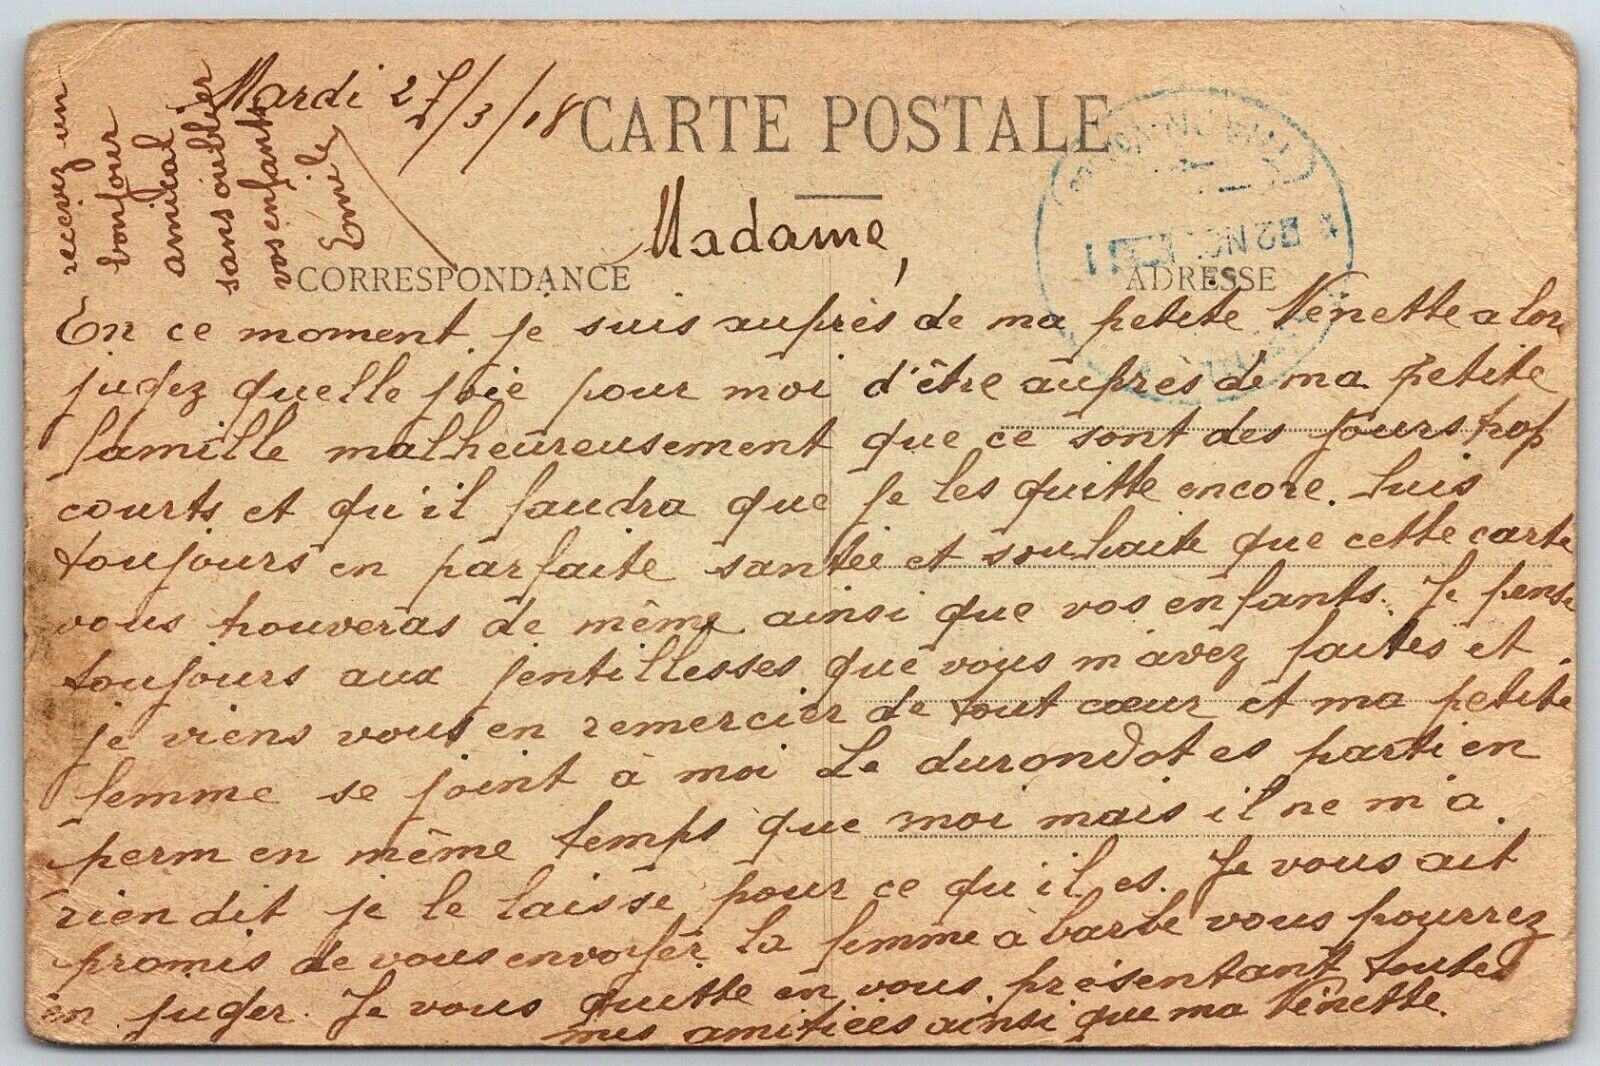 Mardi 27/3/18
CARTE POSTALE
Madame,
CORRESPONDANCE
ADRESSE
En ce moment je suis auprès de ma petite Nenette alors
jugez quelle joie pour moi d'être aupres de ma petite
famille malheureusement que ce sont des jours trop
courts et qu'il faudra que je les quitte encore. Suis
toujours en parfaite santée et souhaite que cette carte
vous trouveras de même ainsi que vos enfants. Je pense
toujours aux jentillesses que vous m'avez faites et
je viens vous en remercier de tout cœur et ma petite
femme se joint à moi Le durondot es parti en
perm en même temps que moi mais il ne m'a
rien dit je le laisse pour ce qu'il es. Je vous ait
promis de vous envoyer la femme à barbe vous pourrez
en juger. Je vous quitte en vous présentant toutes
mes amitiées ainsi que ma Nênette.
recevez un
bonjour
amical
sans oublier
vos enfants
Emile